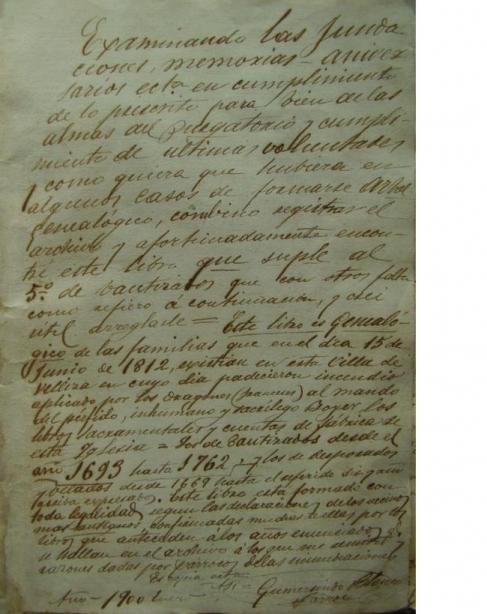 Examinando las funda
ciones, memorias - aniver
sarios ecta en cumplimiento
de lo prescrito para bien de las
almas del Purgatorio y cumpli-
miento de ultimas voluntades
y como quiera que hubiera en
algunos casos de formarse arbol
Genealógico, combino registrar el
archivo y afortunadamente encon-
tre este libro que suple al
5º. de bautizados que con otros falta
como refiero á continuacion, y asi
util arreglarle = Este libro es Genealó-
gico de las familias que en el dia 15 de
Junio de 1812, existian en esta Villa de
en cuyo dia padecieron incendio
aplicado por los Dragones (franceses) al mando
del pérfido, inhumano y sacrílego los
libros sacramentales y cuentas de fábrica de
esta Iglesia = los de bautizados desde el
año 1693 hasta 1762, y los de desposados
y velados desde 1669 hasta el referido
expresado. Este libro esta formado con
toda legalidad, segun las declaraciones de los vecinos
mas antiguos, confirmadas muchas de ellas por los
libros que anteceden a los años enunciados, y
se hallan en el archivo á los que me
razones dadas por parrocos de las
Año 1900 Gumersindo
Parroco